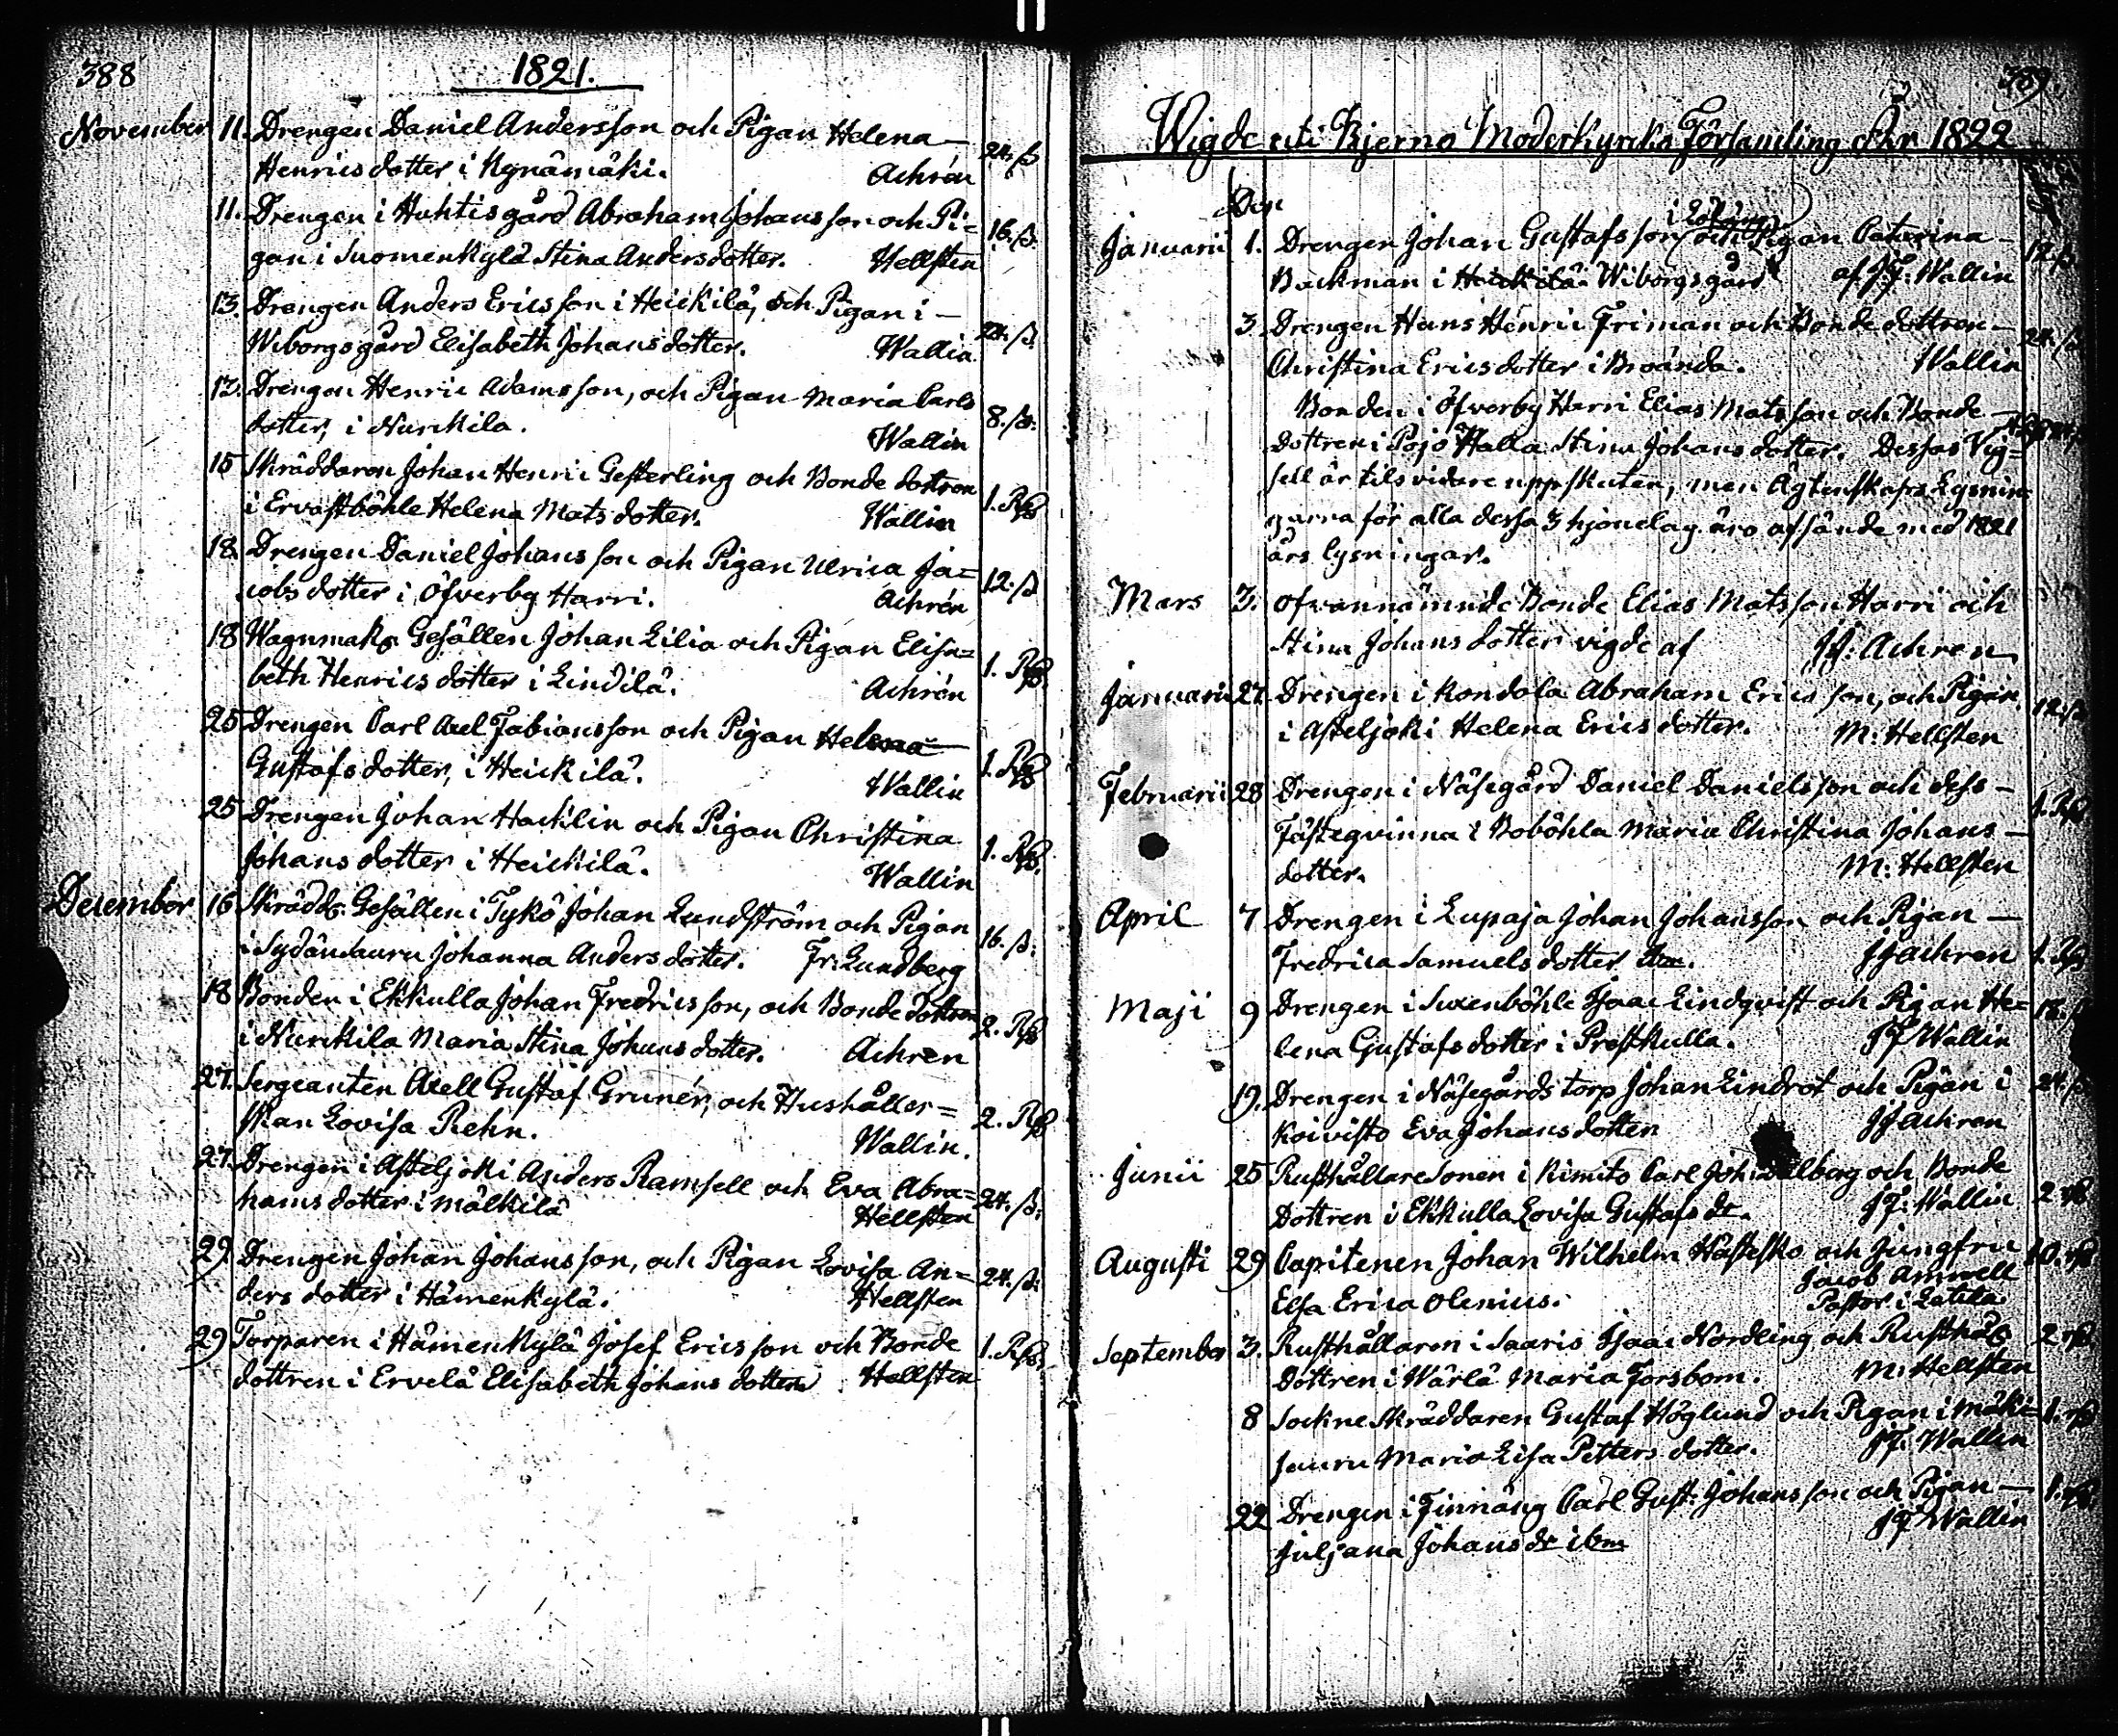 388
1821.
November 11. Drengen Daniel Andersson och Pigan Helena
Henricsdotter i Kynämäki. Achrén 24. ß
11. Drengen i Huhtis gård Abraham Johansson och Pi=
gan i Suomenkylä Stina Andersdotter. Hellsten 16. ß.
13. Drengen Anders Ericsson i Heickilä, och Pigan i
Wiborgsgård Elisabeth Johansdotter. Wallin 24. ß.
13. Drengen Henric Adamsson, och Pigan Maria Carls
dotter, i Nurckila. Wallin 8. ß.
15 Skräddaren Johan Henric Gesterling och Bonde dottren
i Ervastböhle Helena Matsdotter. Wallin 1. Rß
18. Drengen Daniel Johansson och Pigan Ulrica Ja=
cobsdotter i Öfverby Harri. Achrén 12. ß
18 Wagnmak. Gesällen Johan Lilia och Pigan Elisa=
beth Henricsdotter i Lindilä. Achrén 1. Rß.
25 Drengen Carl Axel Fabiansson och Pigan Helena
Gustafsdotter, i Heickilä. Wallin 1. Rß
25 Drengen Johan Hacklin och Pigan Christina
Johansdotter i Heickilä. Wallin 1. Rß.
December 16 Skrädd. Gesällen i Tykö Johan Lundström och Pigan
i Sydänsauru Johanna Andersdotter. Fr: Lundberg 16. ß.
18 Bonden i Ekkulla Johan Fredricsson, och Bonde dottren
i Nurckila Maria Stina Johansdotter. Achren 2. Rß
27. Sergeanten Axell Gustaf Grunér, och Hushåller=
skan Lovisa Rehn. Wallin. 2. Rß
27. Drengen i Asteljoki Anders Ramsell och Eva Abra=
hamsdotter i Mälkilä Hellsten 24. ß.
29. Drengen Johan Johansson, och Pigan Lovisa An=
dersdotter i Hämenkylä. Hellsten 24. ß.
29 Torparen i Hämenkylä Josef Ericsson och Bonde
dottren i Ervelä Elisabeth Johansdotter Hellsten 1. Rß.
389.
Wigde uti Bjerno Moderkyrko Församling Åhr 1822
Den
Januarii 1. Drengen Johan Gustafsson och Pigan Catarina
Backman i Heickilä Wiborgsgård af JF: Wallin 12 ß
3. Drengen Hans Henric Friman och Bonde dottren
Christina Ericsdotter i Broända. Wallin 24. ß
Bonden i Öfverby Harri Elias Matsson och Bonde
dottren i Pojo Halla Stina Johansdotter. Dessas Vig=
sell är tilsvidare uppskuten, men Ägtenskaps Lysnin
garna för alla dessa 3 hjonelag äro afsände med 1821
års lysningar.
Mars 3. Ofvannämnde Bonde Elias Matsson Harri och
Stina Johansdotter vigde af JJ: Achren
Januarii 27. Drengen i Kondola Abraham Ericsson, och Pigan
i Asteljoki Helena Ericsdotter. M: Hellsten 12. ß
Februarii 28 Drengen i Näsegård Daniel Danielsson och dess
Fästeqvinna i Boböhla Maria Christina Johans
dotter. M: Hellsten 1. Rß
April 7 Drengen i Lupaja Johan Johansson och Pigan
Fredrica Samuelsdotter ibm. JJ Achren 1. Rß
Maji 9 Drengen i Suxenböhle Isaac Lindqvist och Pigan He=
lena Gustafsdotter i Prestkulla. JF Wallin 16. ß
19. Drengen i Näsegårds torp Johan Lindrot och Pigan i
Koivisto Eva Johansdotter JJ Achren 24. ß
Junii 25 Rusthållare Sonen i Kimito Carl Joh: Dalberg och Bonde
Dottren i Ekkulla Lovisa Gustafs dr. JF: Wallin 2 rß
Augusti 29 Capitenen Johan Wilhelm Hästesko och Jungfru
Elsa Erica Olenius. Jacob Amnell 10. rß
Pastor i Letala.
September 3. Rusthållaren i Saaris Isaac Nordling och Rusthåll.
Dottren i Wärlä Maria Forsbom. M: Hellsten 2 rß
8 Sockne Skräddaren Gustaf Höglund och Pigan i Mäki=
sauru Maria Lisa Petters dotter. JF. Wallin 1. rß
22 Drengen i Finnäng Carl Gust: Johansson och Pigan
Juljana Johans dr ibm JF Wallin 1. rß